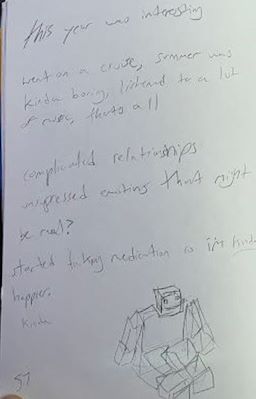 this year was interesting
went on a cruise, summer was
kinda boring, listened to a lot
of music, thats all
complicated relationships
emotions that might
be real?
started taking medication so im kinda
happier.
kinda
57